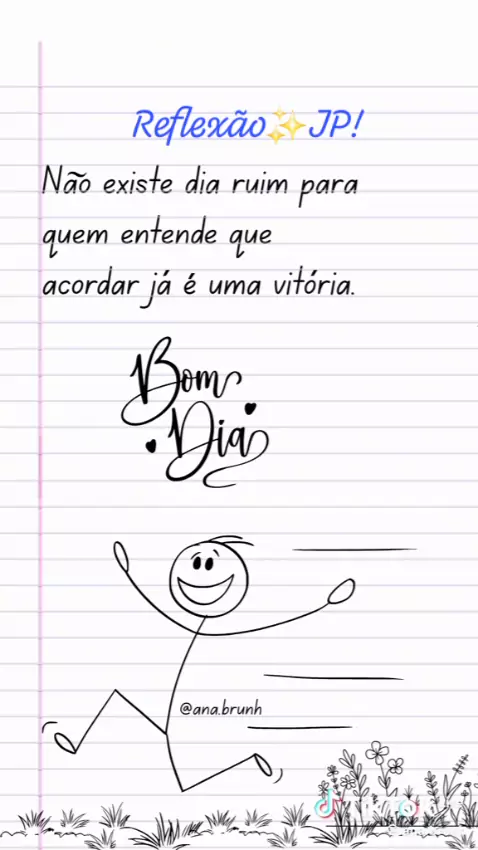 Reflexão✨JP!
Não existe dia ruim para
quem entende que
acordar já é uma vitória.
Bom
Dia
@ana.brunh